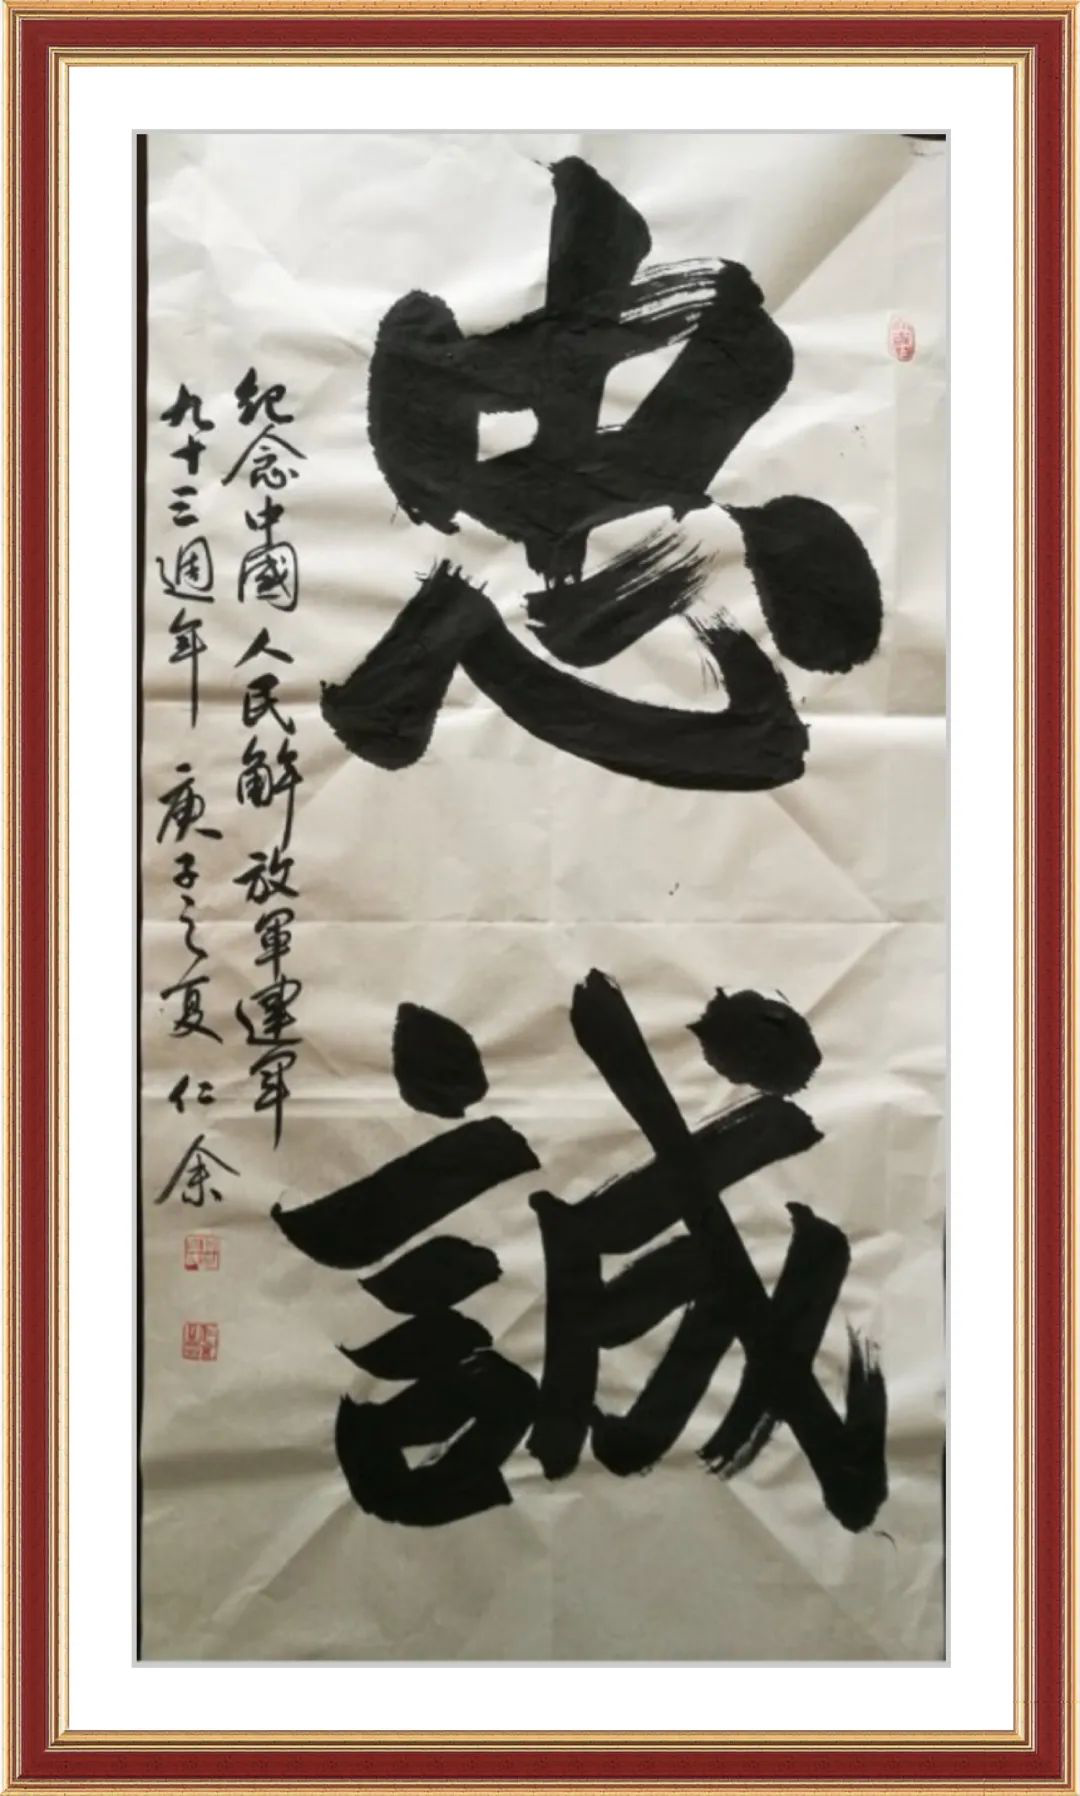 忠誠
紀念中國人民解放軍建軍
九十三週年 庚子之夏 仁余